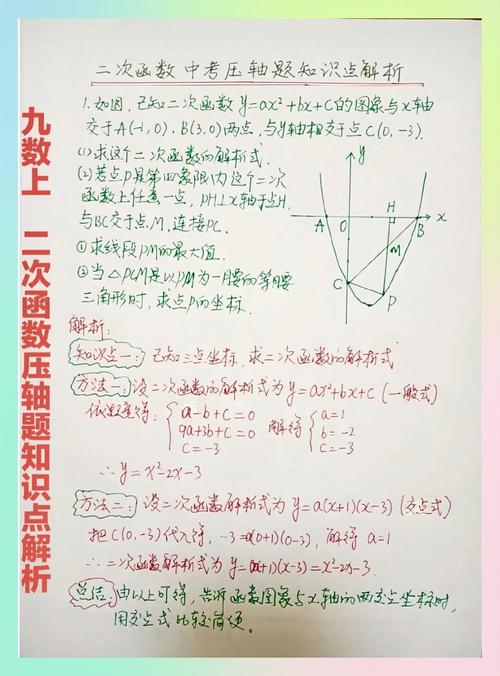 九数上 二次函数压轴题知识点解析
二次函数中考压轴题知识点解析
1.如图,已知二次函数y=ax²+bx+c的图象与x轴
交于A(-1,0),B(3,0)两点,与y轴相交于点C(0,-3).
(1)求这个二次函数的解析式.
(2)若点P是第四象限内这个二次
函数上任意一点,PH⊥x轴于点H,
与BC交于点M,连接PC.
①求线段PM的最大值.
②当△PCM是以PM为一腰的等腰
三角形时,求点P的坐标.
y
A O H B x
M
C
P
解析:
知识点一:已知三点坐标,求二次函数的解析式
方法一:设二次函数的解析式为y=ax²+bx+c(一般式)
依题意得:{a-b+c=0 解得{a=1
9a+3b+c=0 b=-2
c=-3 c=-3
∴y=x²-2x-3
方法二:设二次函数解析式为y=a(x+1)(x-3)(交点式)
把C(0,-3)代入得,-3=a(0+1)(0-3),解得a=1
∴二次函数解析式为y=(x+1)(x-3)=x²-2x-3.
总结:由以上可得,告诉函数图象与x轴的两交点坐标时,
用交点式比较简便。